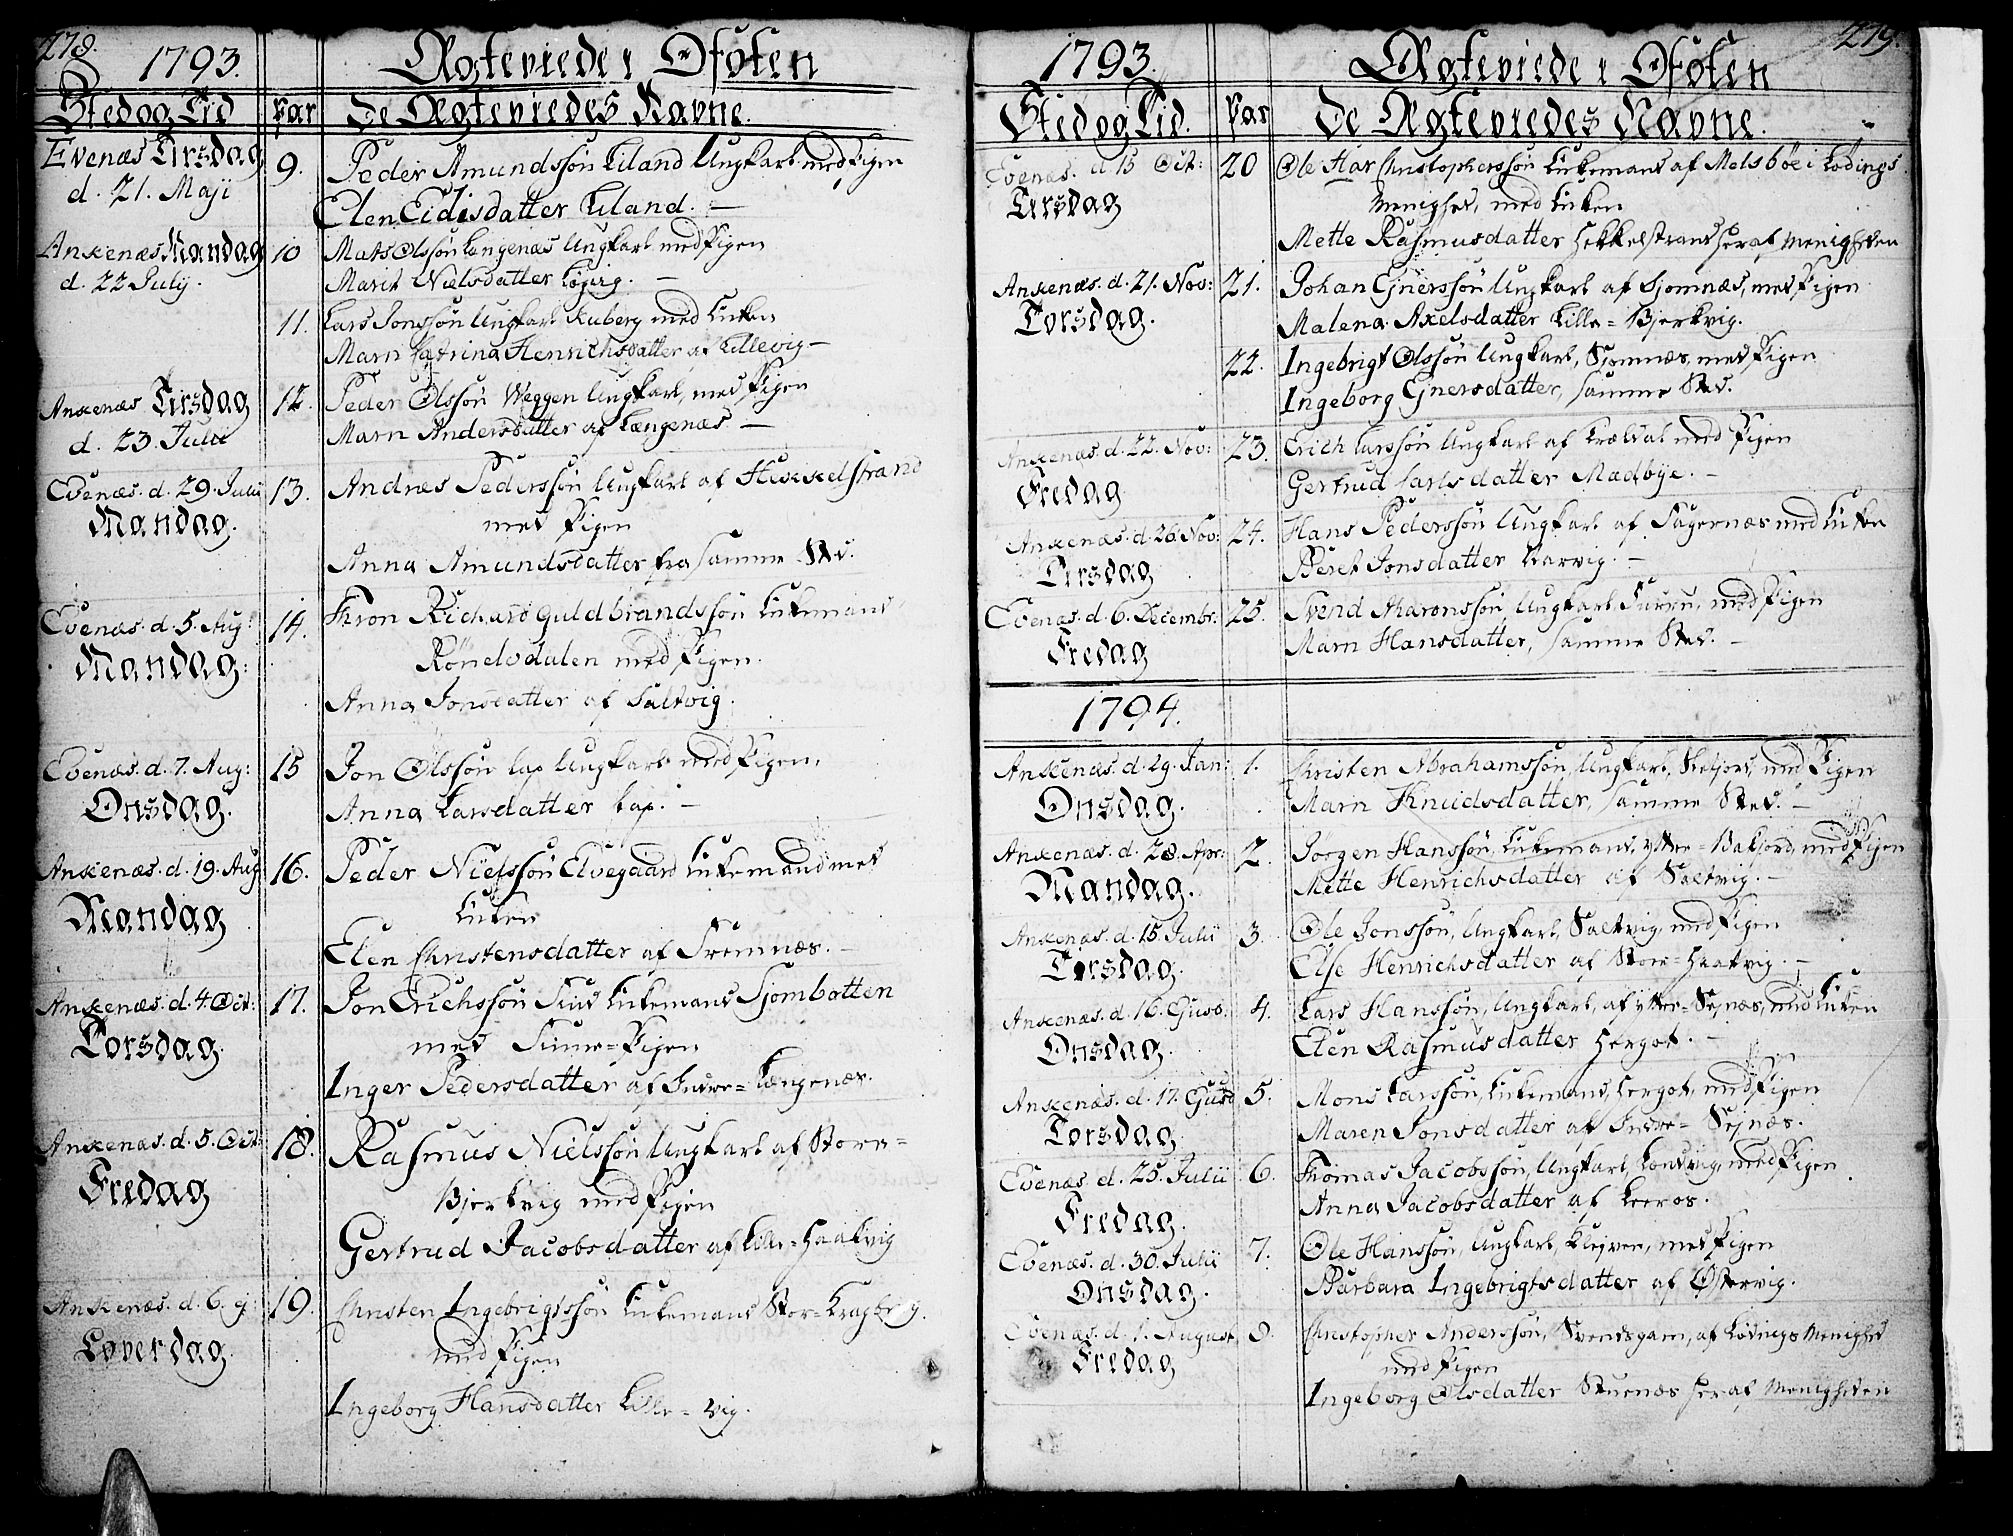 278.
1793.
Ægteviede i Ofoten
Sted og Tid
Par
De Ægteviedes Navne.
Evenæs Tirsdag
d. 21. Maji
9.
Peder Amundssøn Liland Ungkarl med Pigen
Elen Eidisdatter Liland. —
Ankenæs Mandag
d. 22 July.
10
Mats Olssøn Længenæs Ungkarl med Pigen
Marit Nielsdatter —
11.
Lars Jonssøn Ungkarl med Enken
Marn Catrina Henrichsdatter af Lillevig —
Ankenæs Tirsdag
d. 23. Julii
12.
Peder Olssøn Weggen Ungkarl, med Pigen
Marn Andersdatter af Længenæs —
Evenæs. d. 29. Julii
Mandag.
13.
Andræs Pederssøn Ungkarl af Hekkelstrand
med Pigen
Anna Amundsdatter fra samme Sted.
Evenæs. d. 5. Aug:
Mandag:
14.
Thron Richard Guldbrandssøn Enkemand
med Pigen.
Anna Jonsdatter af Saltvig.
Evenæs. d. 7. Aug:
Onsdag.
15
Jon Olssøn lap Ungkarl med Pigen,
Anna Larsdatter lap. —
Ankenæs. d. 19. Aug
Mandag
16.
Peder Nielssøn Elvegaard Enkemand med
Enken
Elen Christensdatter af —
Ankenæs. d. 4. Oct:
Torsdag
17.
Jon Erichssøn Find Enkemand Sjombotten
med Finne-Pigen
Inger Pedersdatter af Indre-Længenæs.
Ankenæs. d. 5. Oct:
Fredag
18.
Rasmus Nielssøn Ungkarl af Store-
Bjerkvig med Pigen
Gertrud Jacobsdatter af Lille-Haakvig
Ankenæs. d. 6. ej:
Løverdag.
19.
Christen Ingebrigtssøn Enkemand
med Pigen
Ingeborg Hansdatter Lille-vig.
279.
1793.
Ægteviede i Ofoten
Sted og Tid.
Par
De Ægteviedes Navne.
Evenæs. d 15 Oct:
Tirsdag
20
Ole Christopherssøn Enkemand af Melsbøe i Lødings
Menighed, med Enken
Mette Rasmusdatter Hekkelstrand her af Menigheden
Ankenæs. d. 21. Nov:
Torsdag.
21.
Johan Ejnerssøn Ungkarl af Sjomnæs, med Pigen
Malena Axelsdatter Lille-Bjerkvig.
22.
Ingebrigt Olssøn Ungkarl, Sjomnæs, med Pigen
Ingeborg Ejnersdatter, samme Sted.
Ankenæs. d. 22. Nov:
Fredag
23.
Erich Larssøn Ungkarl af Trældal med Pigen
Gertrud Carlsdatter Medbye. —
Ankenæs. d. 26 Nov:
Tirsdag
24.
Hans Pederssøn Ungkarl af Fagernæs med Enken
Beret Jonsdatter Narvig. —
Evenæs. d. 6. Decembr:
Fredag
25.
Svend Aaronssøn, Ungkarl, med Pigen
Marn Hansdatter, samme Sted. —
1794.
Ankenæs. d. 29. Jan:
Onsdag.
1.
Christen Abrahamssøn, Ungkarl, Skjord, med Pigen
Marn Knudsdatter, samme Sted. —
Ankenæs. d. 28. Apr:
Mandag.
2.
Jørgen Hanssøn, Enkemand, ytter- med Pigen
Mette Henrichsdatter af Saltvig. —
Ankenæs. d. 15. Julii
Tirsdag.
3.
Ole Jonssøn, Ungkarl, Saltvig, med Pigen
Else Henrichsdatter af Store-Haakvig. —
Ankenæs. d. 16. Ejusd:
Onsdag.
4.
Lars Hanssøn, Ungkarl, af ytter-Sejnæs, med Enken
Elen Rasmusdatter Hergot. —
Ankenæs. d. 17. Ejusd
Torsdag.
5.
Mons Larssøn, Enkemand, Hergot, med Pigen
Maren Jonsdatter af Indre-Sejnæs.
Evenæs. d. 25. Julii
Fredag.
6.
Thomas Jacobssøn, Ungkarl, med Pigen
Anna Jacobsdatter af Leeros.
Evenæs. d. 30. Julii
Onsdag.
7.
Ole Hanssøn, Ungkarl, Klejven, med Pigen
Barbara Ingebrigtsdatter af Østervig.
Evenæs. d. 1. August.
Fredag
8.
Christopher Anderssøn, af Lødings Menighed
med Pigen
Ingeborg Olsdatter Stuenæs her af Menigheden